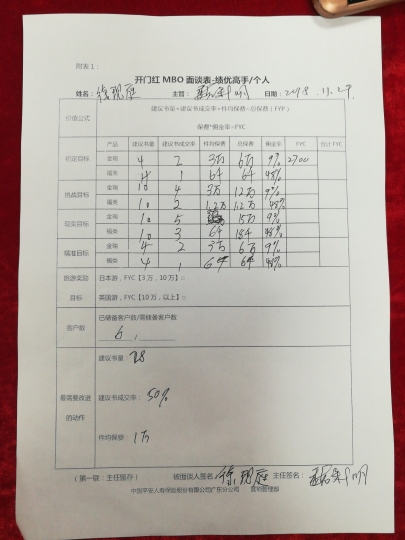 附表1：
开门红MBO面谈表-绩优高手/个人
姓名： 主管： 日期：2018.11.27.
价值公式 建议书量*建议书成交率*件均保费=总保费（FYP）
保费*佣金率=FYC
产品 建议书量 建议书成交率 件均保费 总保费 佣金率 FYC 合计FYC
初定目标 金瑞 4 2 3万 6万 9% 2700
福类 4 1 6千 6千 48%
挑战目标 金瑞 10 4 3万 12万 9%
福类 10 2 1.2万 48%
现实目标 金瑞 10 5 15万 9%
福类 10 3 6千 18千 48%
瞄准目标 金瑞 4 2 3万 6万 9%
福类 4 1 6千 6千 48%
旅游奖励 日本游，FYC【3万，10万】□
目标 英国游，FYC【10万，以上】□
客户数 已储备客户数/需储备客户数
6 ,
最需要改进的动作 建议书量 28
建议书成交率： 50%
件均保费： 1万
（第一联：主任留存） 被面谈人签名： 主任签名：
中国平安人寿保险股份有限公司广东分公司 营销管理部